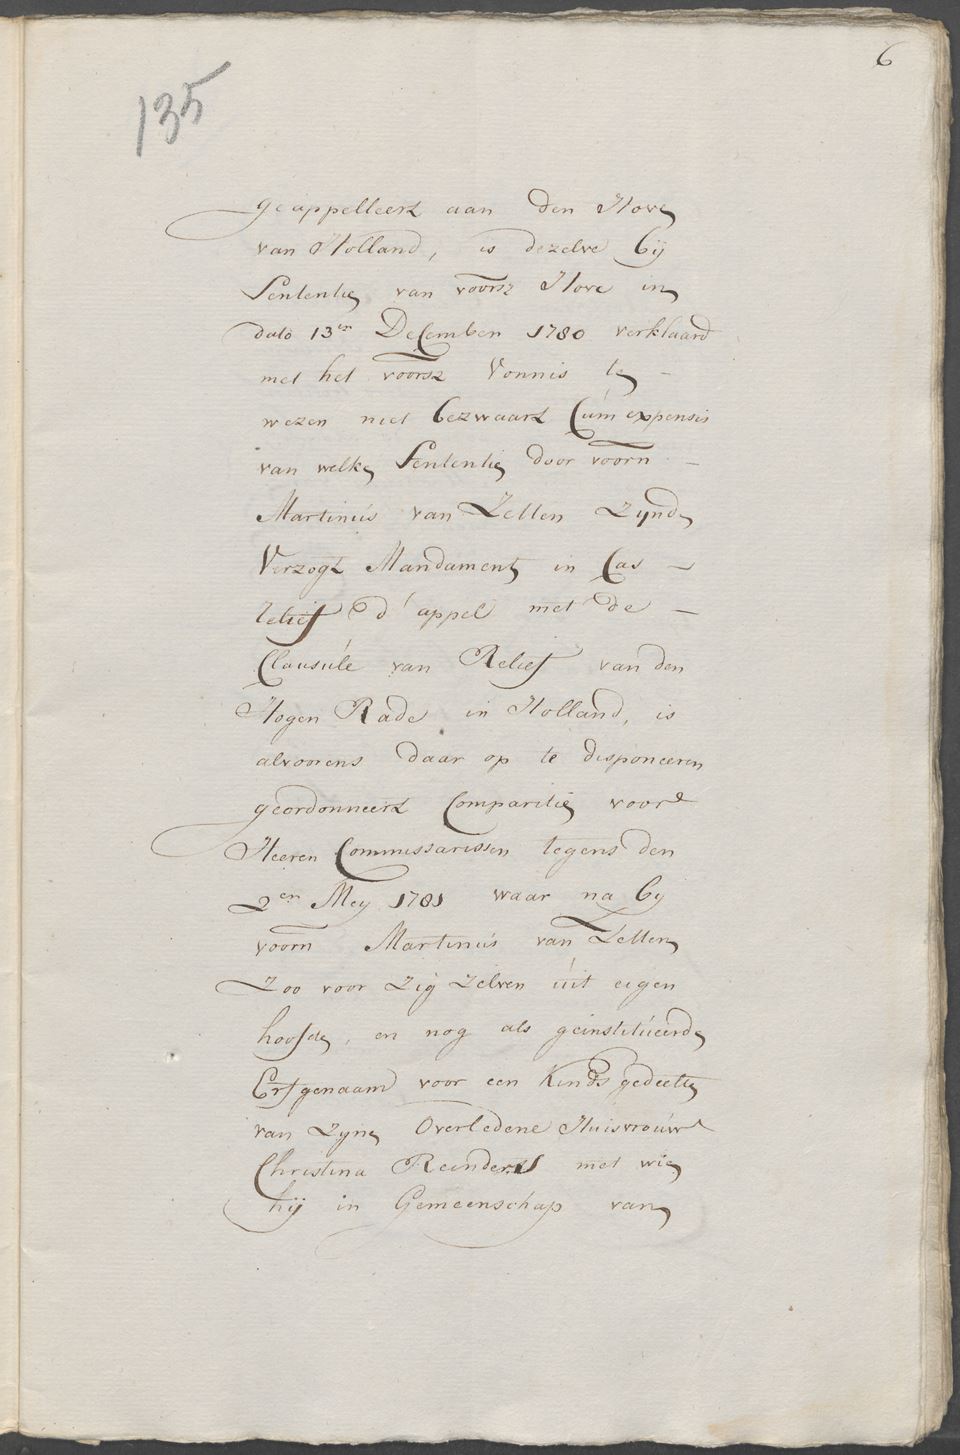 6
135
geappelleert aan den Hove
van Holland, is dezelve bij
Sententie van voorsz Hove in
dato 13en December 1780 verklaard
met het voorsz Vonnis te
wezen niet bezwaart Cum expensis
van welke Sententie door voorn
Martinus van Zetten Zijnde
Verzogt Mandament in Cas
reliëf d'appel met de
Clausúle van Relief van den
Hogen Rade in Holland, is
alvoorens daar op te disponeeren
geordonneert Comparitie voor
Heeren Commissarissen tegens den
2en Meij 1781 waar na bij
voorn Martinús van Zetten
Zoo voor Zig Zelven úit eigen
hoofde, en nog als geinstitúeerde
Erfgenaam voor een Kinds gedeelte
van Zijne Overledene Huisvroúw
Christina Reinders met wie
hij in Gemeenschap van